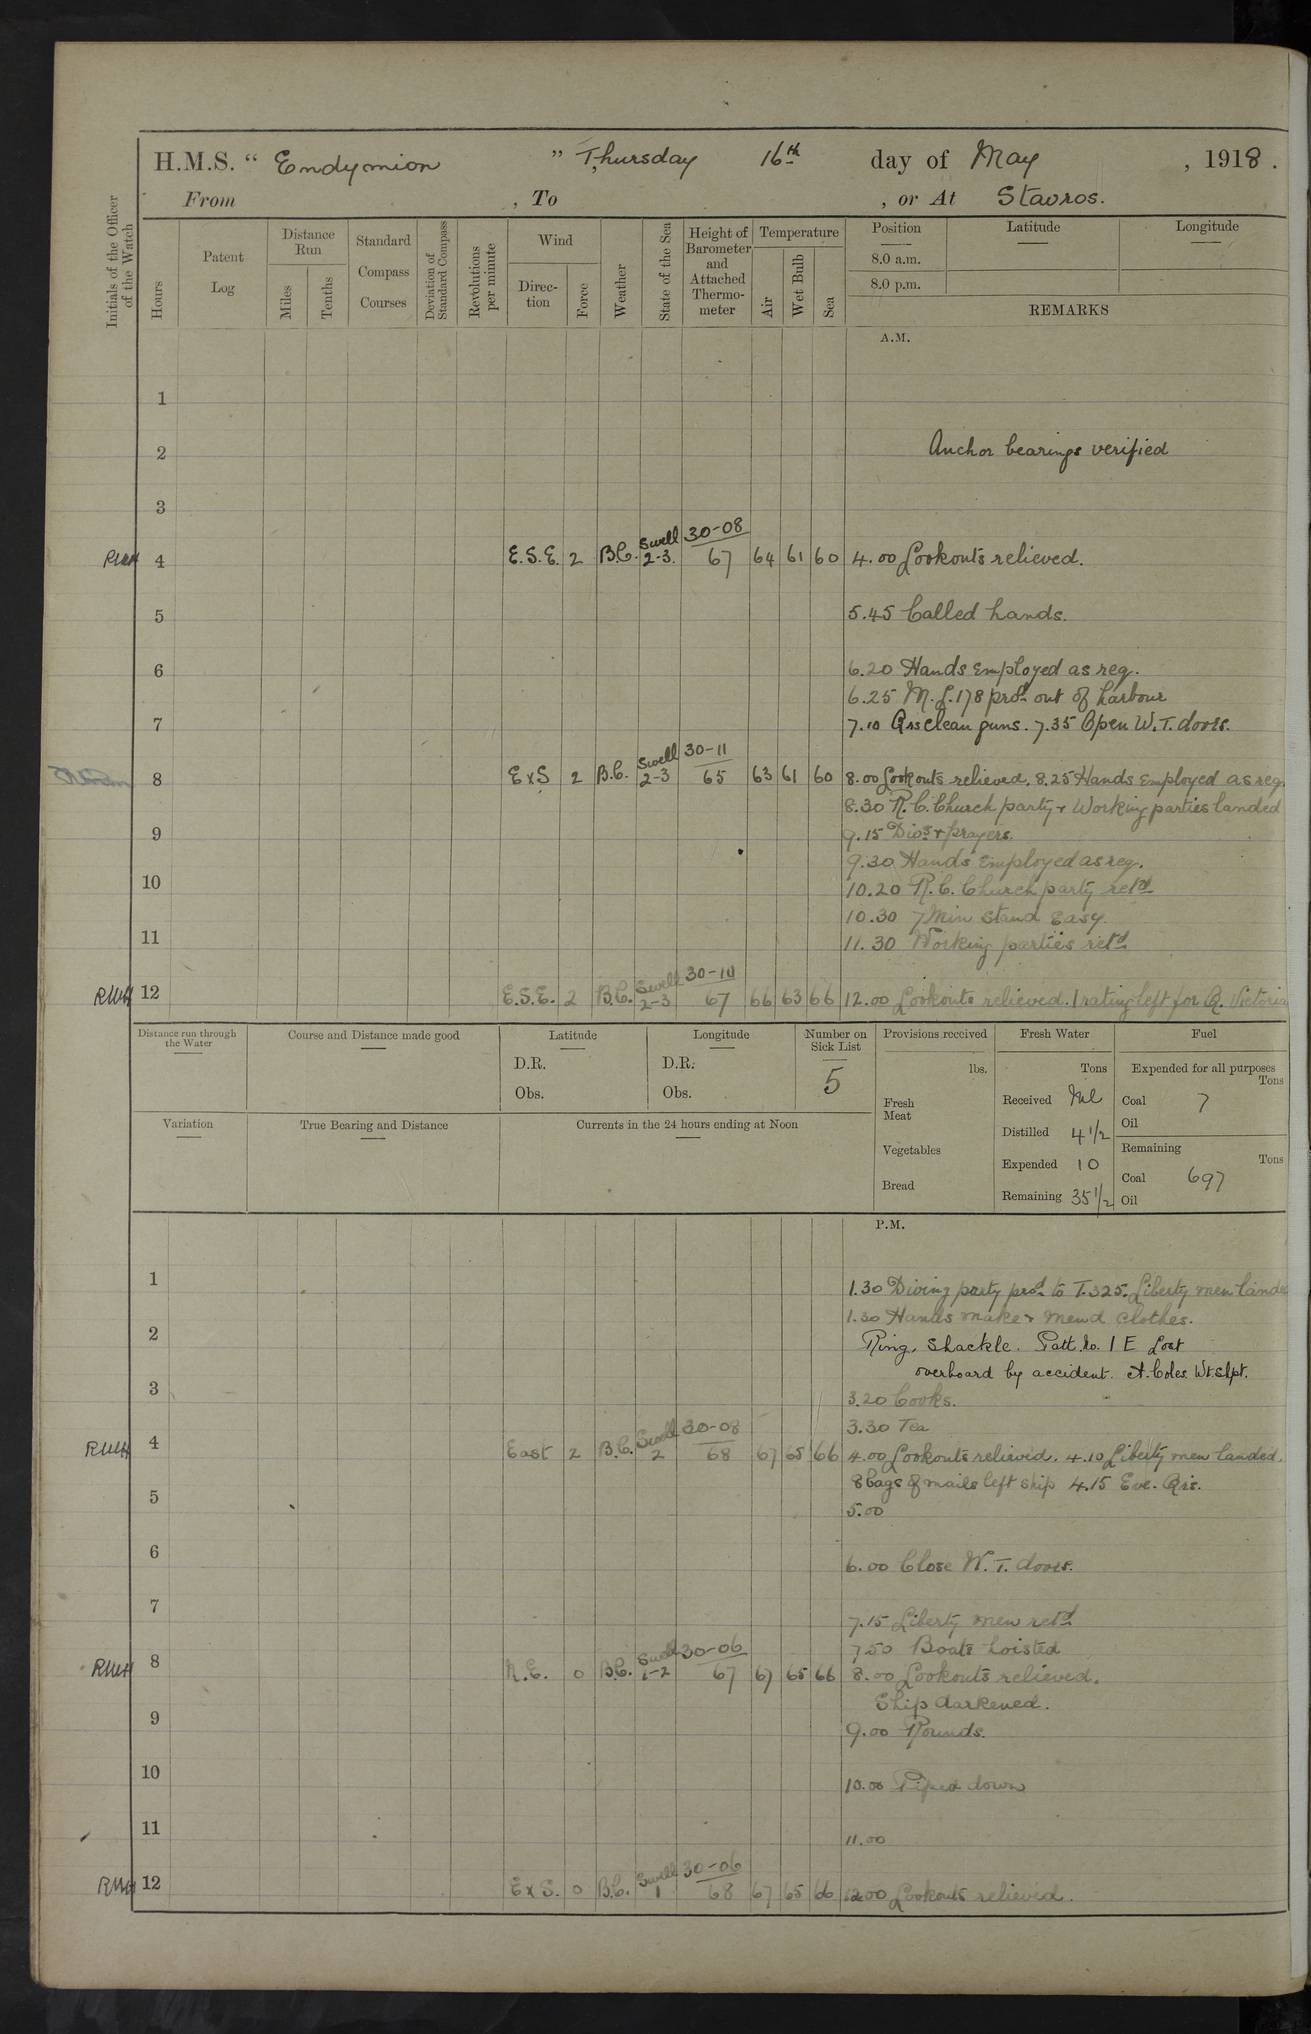 H.M.S. “ Endymion ” Thursday 16th day of May , 1918 .
From , To , or At Stavros.
Initials of the Officer of the Watch
Hours
Patent Log
Distance Run
Miles
Tenths
Standard Compass Courses
Deviation of Standard Compass
Revolutions per minute
Wind
Direction
Force
Weather
State of the Sea
Height of Barometer and Attached Thermometer
Temperature
Air
Wet Bulb
Sea
Position Latitude Longitude
8.0 a.m.
8.0 p.m.
REMARKS
A.M.
1
2 Anchor bearings verified
3
Swell 30-08
RWH 4 E.S.E. 2 B.C. 2-3. 67 64 61 60 4.00 Lookouts relieved.
5 5.45 Called hands.
6 6.20 Hands Employed as req.
6.25 M.L.178 procd out of harbour
7 7.10 Qrs clean guns. 7.35 Open W.T. doors.
Swell 30-11
8 ExS 2 B.C. 2-3 65 63 61 60 8.00 Lookouts relieved. 8.25 Hands Employed as req.
8.30 R.C. Church party + Working parties landed
9 9.15 Divs + prayers.
9.30 Hands Employed as req.
10 10.20 R.C. Church party retd
10.30 7 Min Stand Easy.
11 11.30 Working parties retd
Swell 30-10
RWH 12 E.S.E. 2 B.C. 2-3 67 66 63 66 12.00 Lookouts relieved. 1 rating left for Q. Victoria
Distance run through the Water
Course and Distance made good
Latitude
D.R.
Obs.
Longitude
D.R.
Obs.
Number on Sick List
5
Provisions received
lbs.
Fresh Meat
Vegetables
Bread
Fresh Water
Tons
Received Nil
Distilled 4 1/2
Expended 10
Remaining 35 1/2
Fuel
Expended for all purposes
Tons
Coal 7
Oil
Remaining
Tons
Coal 697
Oil
Variation
True Bearing and Distance
Currents in the 24 hours ending at Noon
P.M.
1 1.30 Diving party procd to T.325. Liberty men lande
1.30 Hands make + mend clothes.
2 Ring, Shackle. Patt. No. 1 E Lost
overboard by accident. A. Coles Wt. Shpt.
3 3.20 Cooks.
3.30 Tea
Swell 30-08
RWH 4 East 2 B.C. 2 68 67 65 66 4.00 Lookouts relieved. 4.10 Liberty men landed.
8 bags of mails left ship 4.15 Eve. Qrs.
5 5.00
6 6.00 Close W.T. doors.
7 7.15 Liberty men retd
7.50 Boats hoisted
Swell 30-06
RWH 8 N.E. 0 B.C. 1-2 67 67 65 66 8.00 Lookouts relieved.
Ship darkened.
9 9.00 Rounds.
10 10.00 Piped down
11 11.00
Swell 30-06
RWH 12 ExS. 0 B.C. 1 68 67 65 66 12.00 Lookouts relieved.